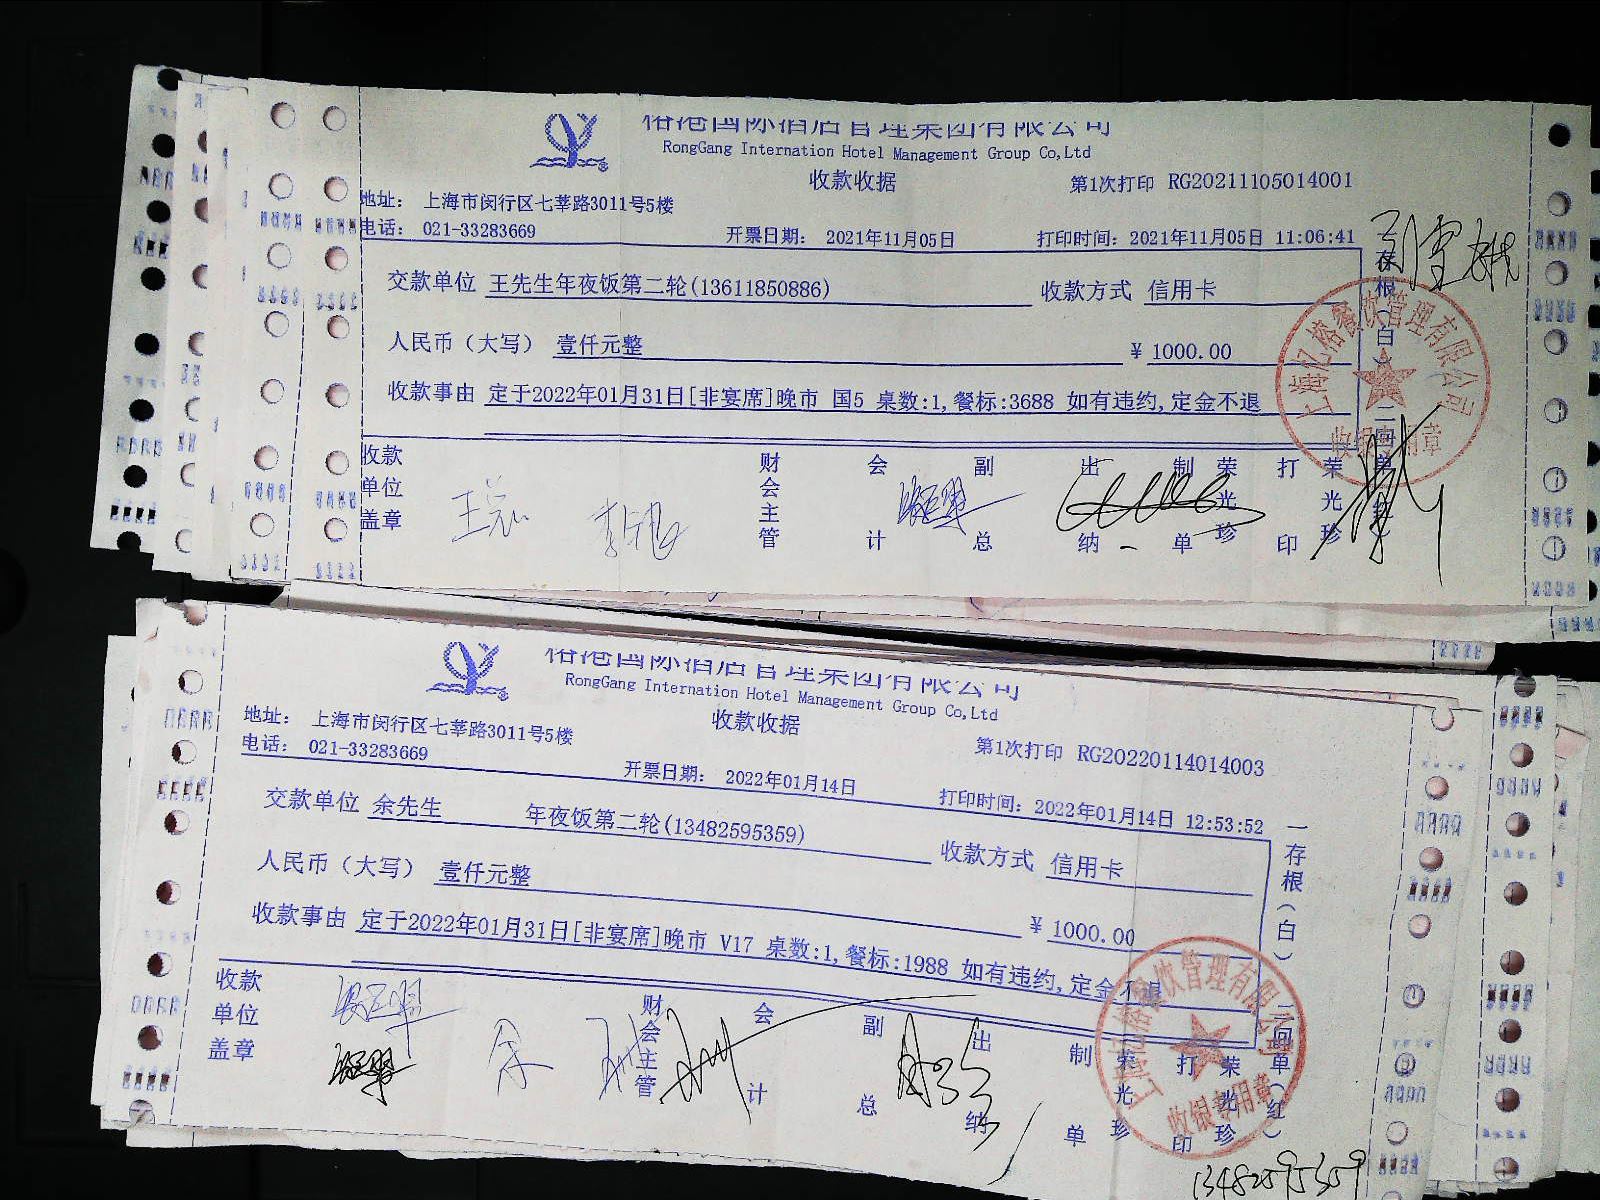 榕港国际酒店管理集团有限公司
RongGang Internation Hotel Management Group Co,Ltd
收款收据
第1次打印 RG20211105014001
地址： 上海市闵行区七莘路3011号5楼
电话： 021-33283669
开票日期： 2021年11月05日
打印时间：2021年11月05日 11:06:41
交款单位 王先生年夜饭第二轮(13611850886)
收款方式 信用卡
人民币（大写） 壹仟元整
¥ 1000.00
收款事由 定于2022年01月31日[非宴席]晚市 国5 桌数:1,餐标:3688 如有违约,定金不退
一存根（白）二回单（红）
上海亿榕餐饮管理有限公司
收银专用章
收款单位盖章
财会主管
会计
副总
出纳
制单 荣光珍
打印 荣光珍
榕港国际酒店管理集团有限公司
RongGang Internation Hotel Management Group Co,Ltd
收款收据
第1次打印 RG20220114014003
地址： 上海市闵行区七莘路3011号5楼
电话： 021-33283669
开票日期： 2022年01月14日
打印时间：2022年01月14日 12:53:52
交款单位 余先生 年夜饭第二轮(13482595359)
收款方式 信用卡
人民币（大写） 壹仟元整
¥ 1000.00
收款事由 定于2022年01月31日[非宴席]晚市 V17 桌数:1,餐标:1988 如有违约,定金不退
一存根（白）二回单（红）
上海亿榕餐饮管理有限公司
收银专用章
收款单位盖章
余
财会主管
会计
副总
出纳
制单 荣光珍
打印 荣光珍
13482595359